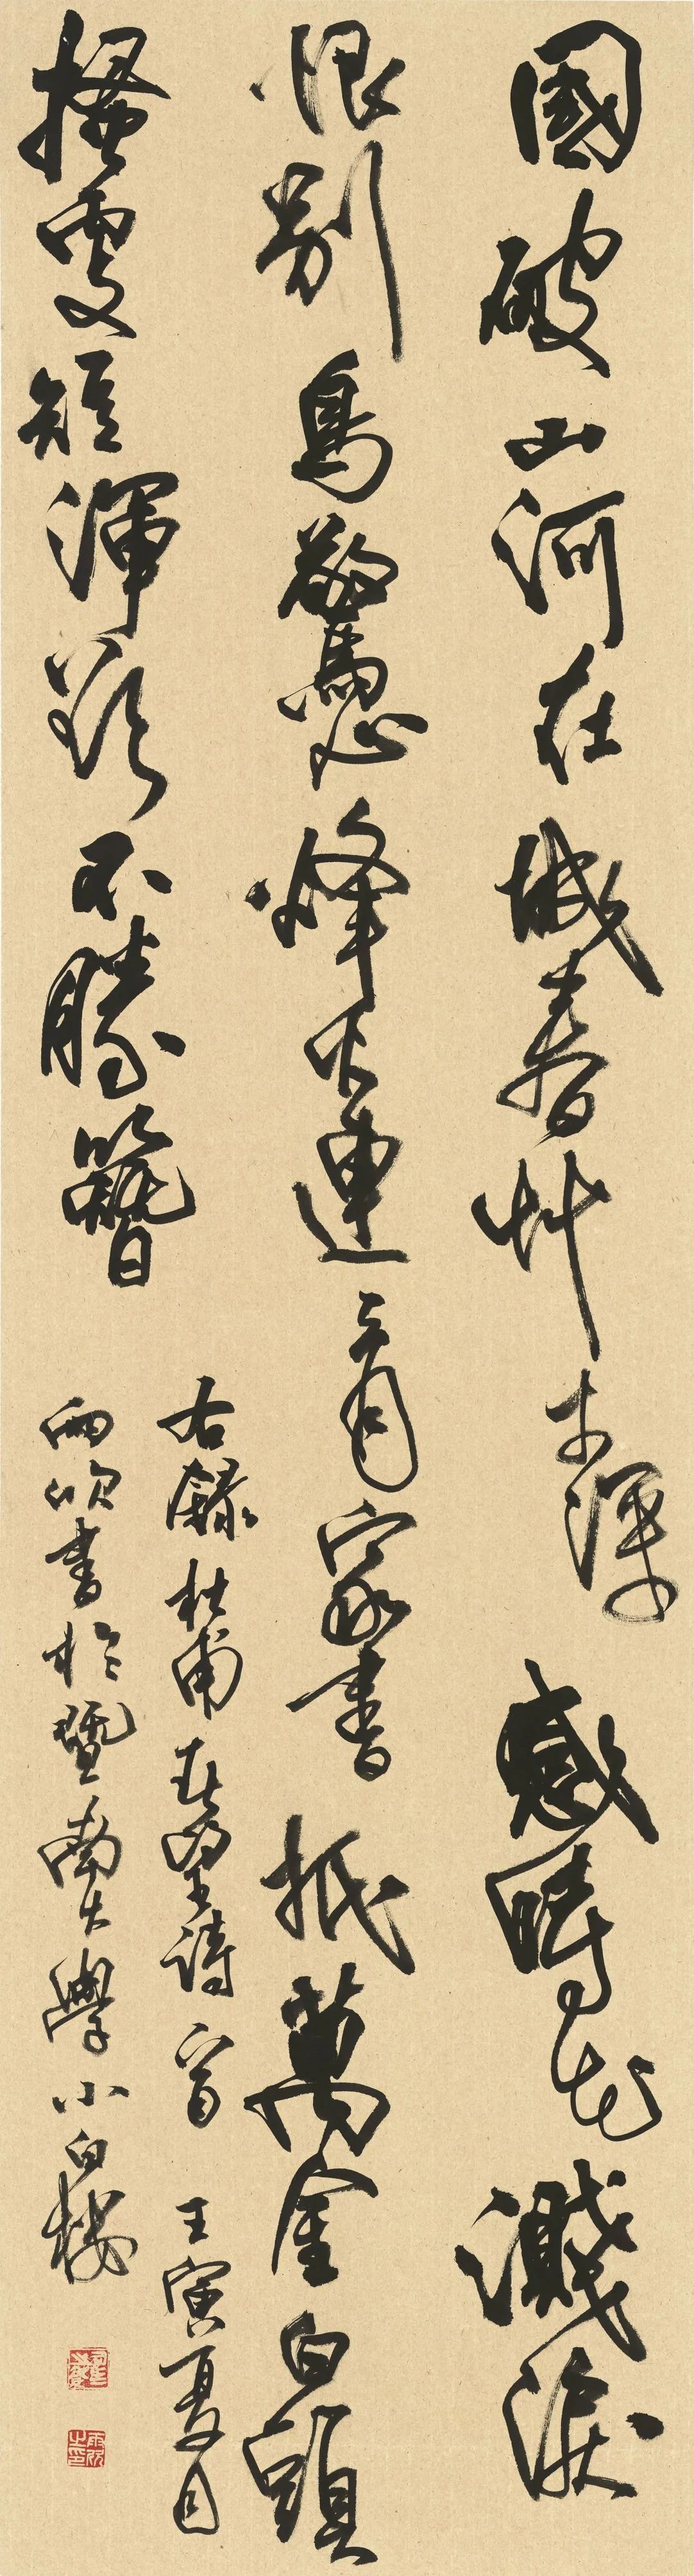 國破山河在城春艸木深感時花濺淚
恨別鳥驚心烽火連三月家書抵萬金白頭
搔更短渾欲不勝簪
右録杜甫春望詩一首壬寅夏月
雨書於暨南大學小白樓